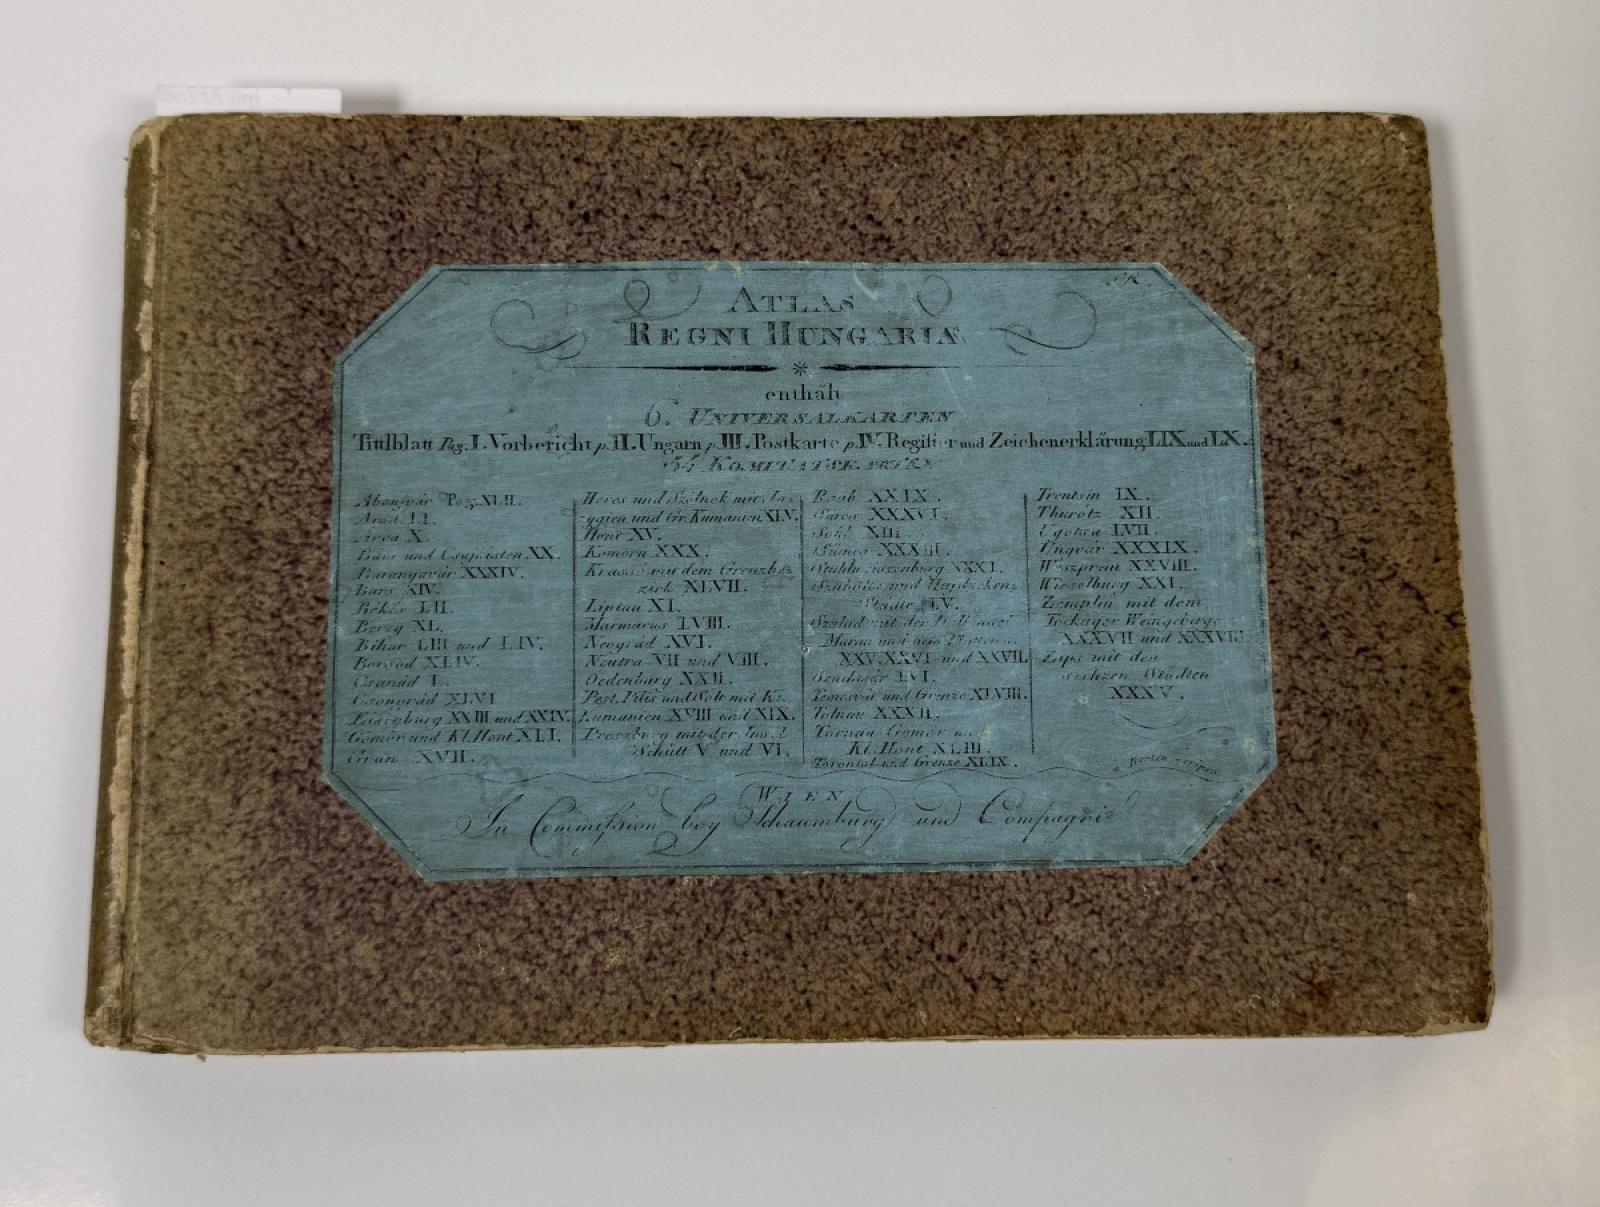 ATLAS
REGNI HUNGARIÆ
enthält
6. UNIVERSALKARTEN
Tittlblatt Pag. I. Vorbericht p. II. Ungarn p. III. Postkarte p. IV. Register und Zeichenerklärung LIX und LX.
54 KOMITATSKARTEN
Abaujvár Pag. XLII.
Arad. LI.
Arva X.
Bács und Csajkisten XX.
Baranyavár XXXIV.
Bars XIV.
Békés LII.
Bereg XL.
Bihar LIII und LIV.
Borsod XLIV.
Csanád L.
Csongrád XLVI
Eisenburg XXIII und XXIV.
Gömör und Kl. Hont XLI.
Gran XVII.
Heves und Szolnok mit Ja-
zygien und Gr. Kumanien XLV.
Hont XV.
Komorn XXX.
Krassó mit dem Grenzbe-
zirk XLVII.
Liptau XI.
Marmarus LVIII.
Neográd XVI.
Neutra VII und VIII.
Oedenburg XXII.
Pest, Pilis und Solt mit Kl.
Kumanien XVIII und XIX.
Preszburg mit der Insel
Schütt V und VI.
Raab XXIX.
Saros XXXVI.
Sohl XIII
Sümeg XXXIII.
Stuhlweiszenburg XXXI.
Szabolcs und Hayducken-
Städte LV.
Szalad mit der
Muran und dem
XXV. XXVI und XXVII.
Szathmár LVI.
Temesvár und Grenze XLVIII.
Tolnau XXXII.
Tornau Gömör u.
Kl. Hont XLIII.
Torontal und Grenze XLIX.
Trentsin IX.
Thurotz XII.
Ugotsa LVII.
Ungvár XXXIX.
Weszprem XXVIII.
Wieselburg XXI.
Zemplin mit dem
Tockayer Weingebirge
XXXVII und XXXVIII.
Zips mit den
sechzen Städten
XXXV.
scripsit
WIEN
In Commission bey Schaumburg und Compagnie